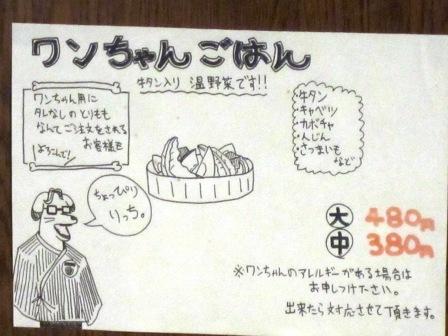 ワンちゃんごはん
牛タン入り 温野菜です!!
ワンちゃん用に
タレなしのとりもも
なんてご注文をされる
お客様も
よろこんで!
牛タン
キャベツ
カボチャ
人じん
さつまいも
など
ちょっぴり
りっち。
大 480円
中 380円
※ワンちゃんのアレルギーがある場合は
お申しつけたさい。
出来たら対応させて頂きます。